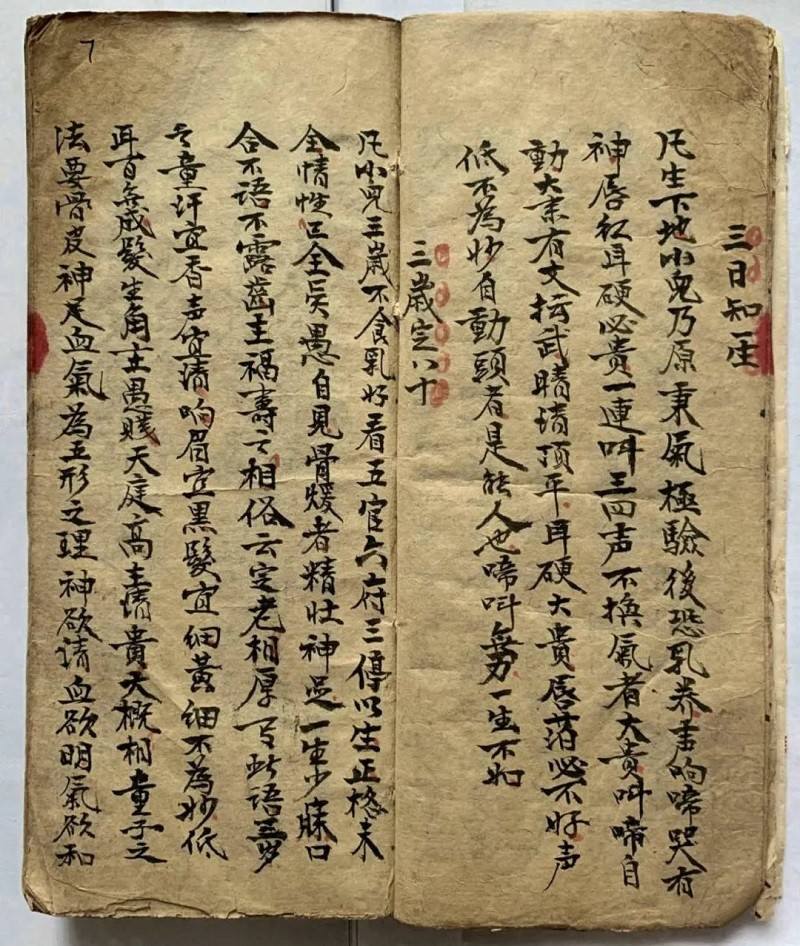 三日知一生
凡生下地小兒乃原秉氣極驗後恐乳养声响啼哭有
神唇紅耳硬必贵一連叫三四声不換氣者大贵叫啼自
動大業有文坛武晴清頂平耳硬大贵唇薄必不好声
低不為妙自動頭者是能人也啼叫無力一生不如
三歲定八十
凡小兒三歲不食乳好看五官六府三停以生正格未
全情性已全矣愚自見骨煖者精壮神足一生少牀口
合不語不露齒主福壽之相俗云定老相厚下此語三岁
之童汗宜香声宜清响眉宜黑髮宜细黄细不為妙低
耳百無成髮生角主愚贱天庭高主清贵大概相童子之
法要骨皮神足血氣為五形之理神欲清血欲明氣欲和
7